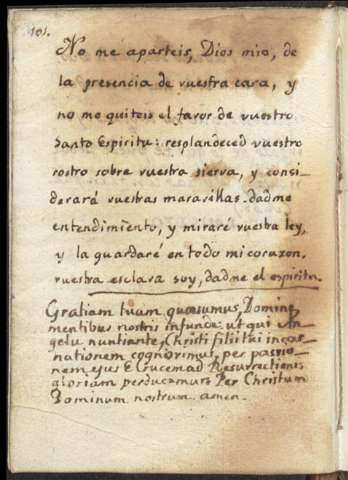 101.
No me aparteis, Dios mio, de
la presencia de vuestra cara, y
no me quiteis el favor de vuestro
Santo Espiritu: resplandeced vuestro
rostro sobre vuestra sierva, y consi-
derará vuestras maravillas. dadme
entendimiento, y miraré vuestra ley,
y la guardaré en todo mi corazon.
vuestra esclava soy, dadme el espiritu.
Gratiam tuam quæsumus, Domine
mentibus nostris infunde: ut qui An-
gelo nuntiante, Christi filii tui incar-
nationem cognovimus, per passio-
nem ejus E Crucem ad Resurrectionis
gloriam perducamur. Per Christum
Dominum nostrum amen.